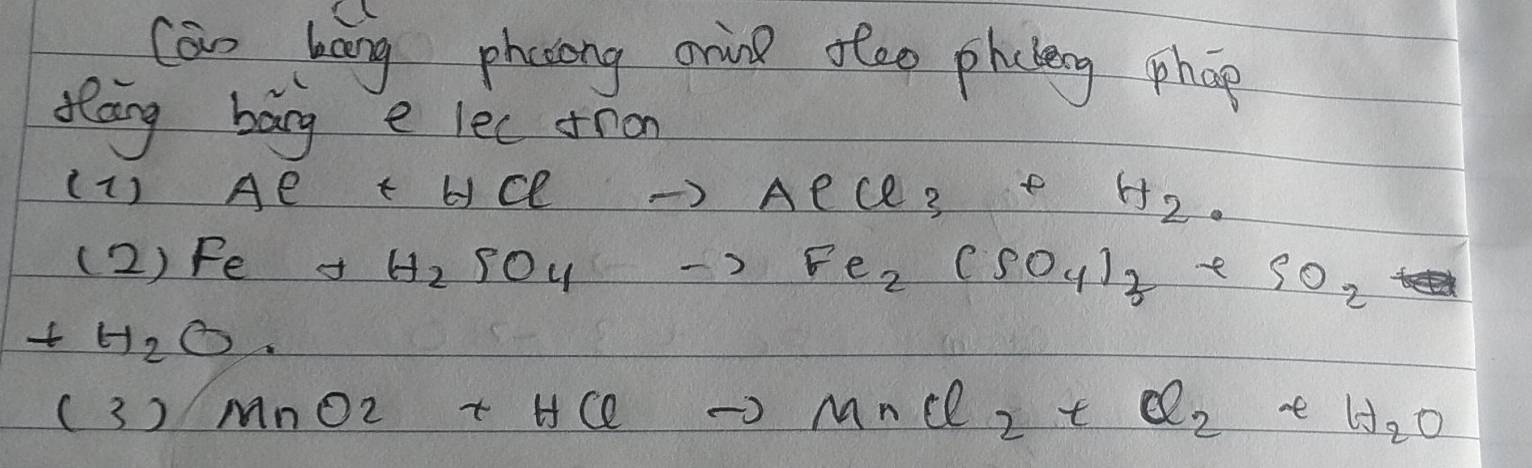 Cân bằng phương trình theo phương pháp
thăng bằng e lec tron
(1) Al + HCl -> AlCl3 + H2.
(2) Fe + H2SO4 -> Fe2(SO4)3 + SO2
+ H2O.
(3) MnO2 + HCl -> MnCl2 + Cl2 + H2O